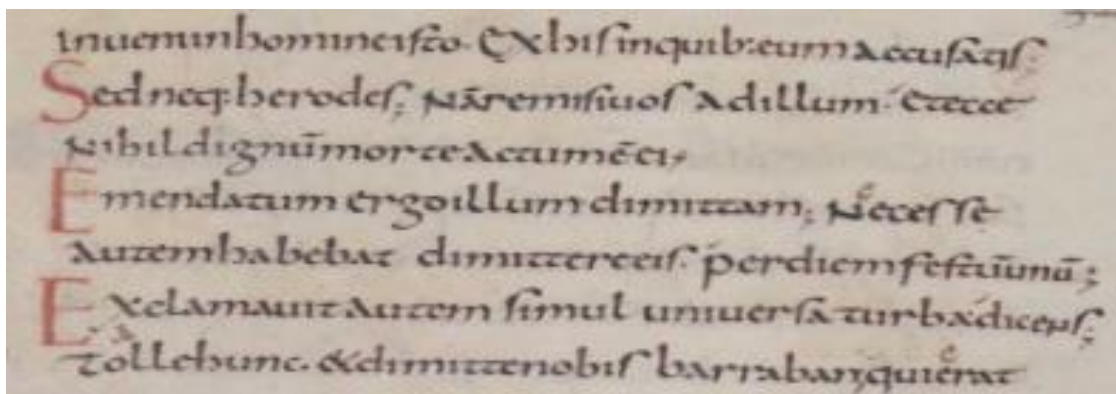 Inueni in homine isto. Ex his in quib: eum accusatis;
Sed neq: herodes; Nā remisi uos ad illum. Et ecce
Nihil dignū morte actum ē ei;
Emendatum ergo illum dimittam; Necesse
Autem habebat dimittere eis. per diem festū unū;
Exclamauit autem simul uniuersa turba dicens;
Tolle hunc. & dimitte nobis barraban; qui erat